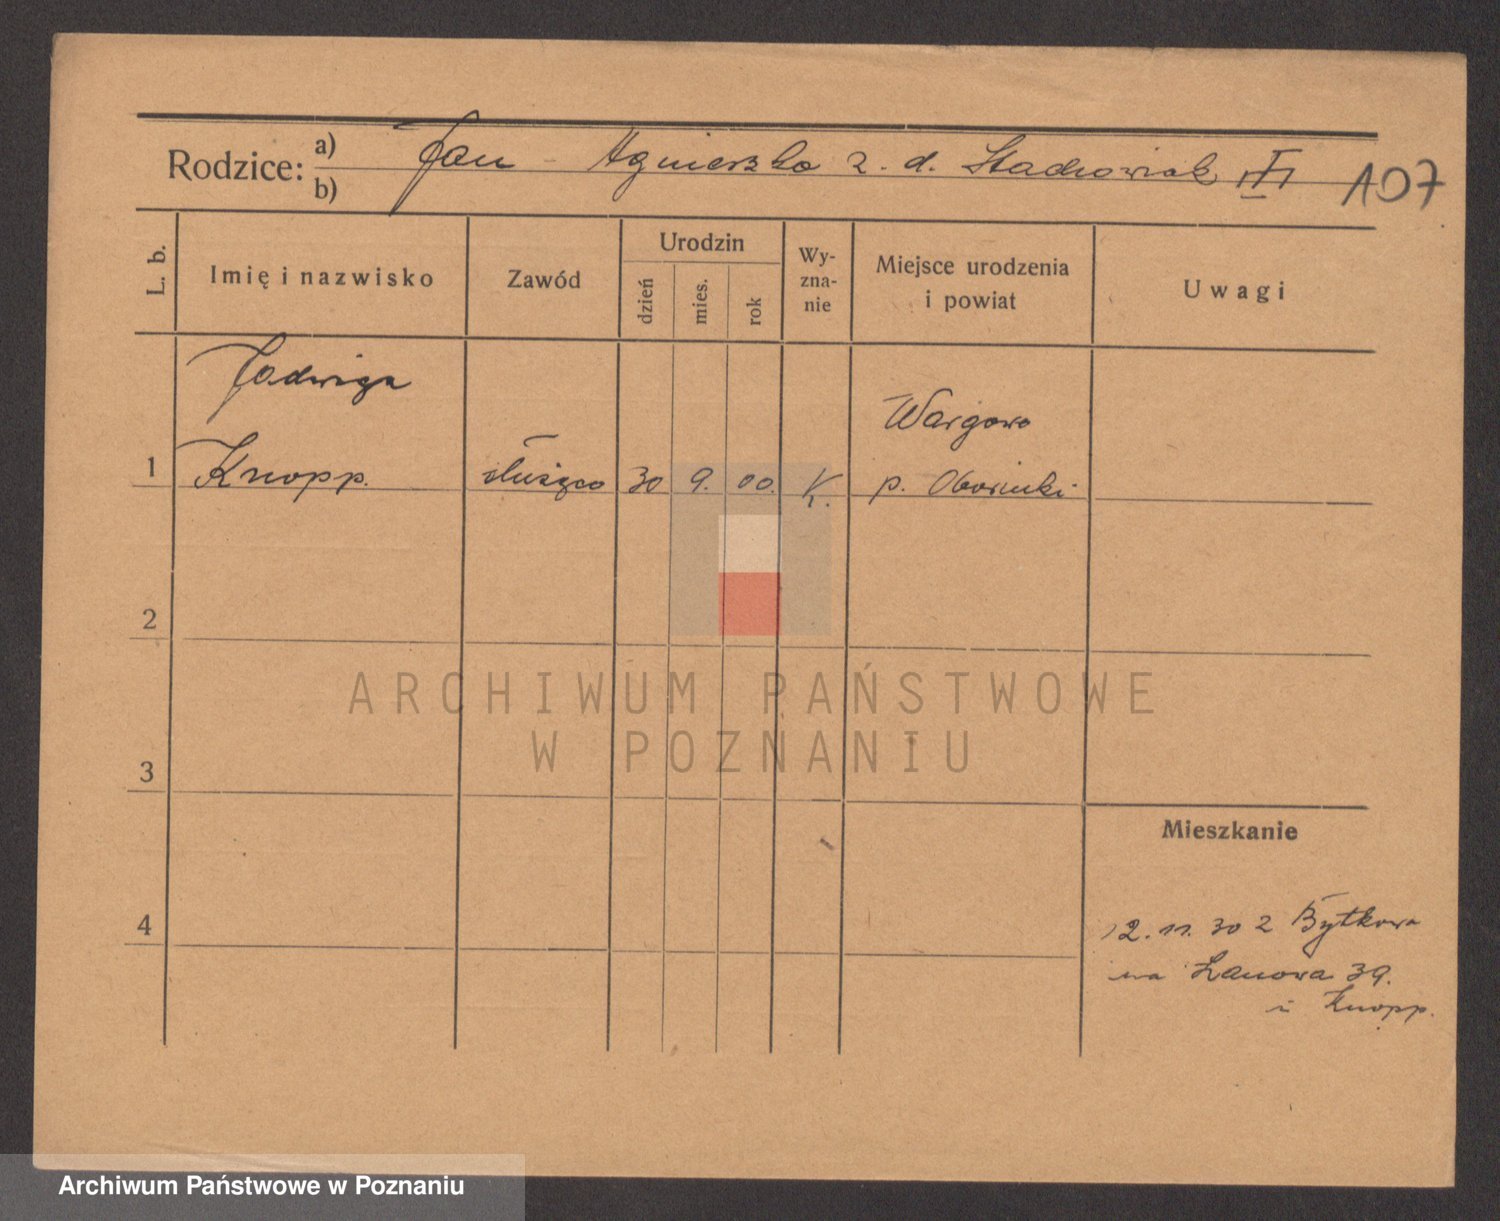 Rodzice:
a)
b)
Jan - Agnieszka z. d. Stachowiak
107
L. b.
Imię i nazwisko
Zawód
Urodzin
dzień
mies.
rok
Wy-
zna-
nie
Miejsce urodzenia
i powiat
Uwagi
Jadwiga
Wargowo
1
Knopp.
służąca
30
9.
00.
K.
p. Obornicki
2
ARCHIWUM PAŃSTWOWE
W POZNANIU
3
Mieszkanie
4
12. 11. 30 z Bytkowa
na Łanowa 39.
u Knopp.
Archiwum Państwowe w Poznaniu